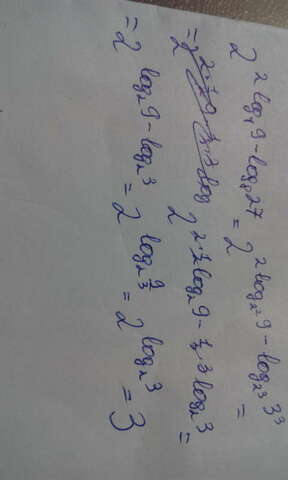 2^{2log₄9 - log₈27} = 2^{2log_{2²}9 - log_{2³}3³} =
= 2^{2·½log₂9 - ⅓·3log₂3} =
= 2^{log₂9 - log₂3} = 2^{log₂ 9/3} = 2^{log₂3} = 3